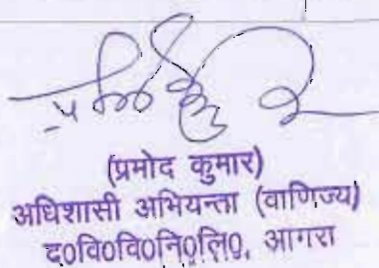 (प्रमोद कुमार)
अधिशासी अभियन्ता (वाणिज्य)
द०वि०वि०नि०लि०, आगरा